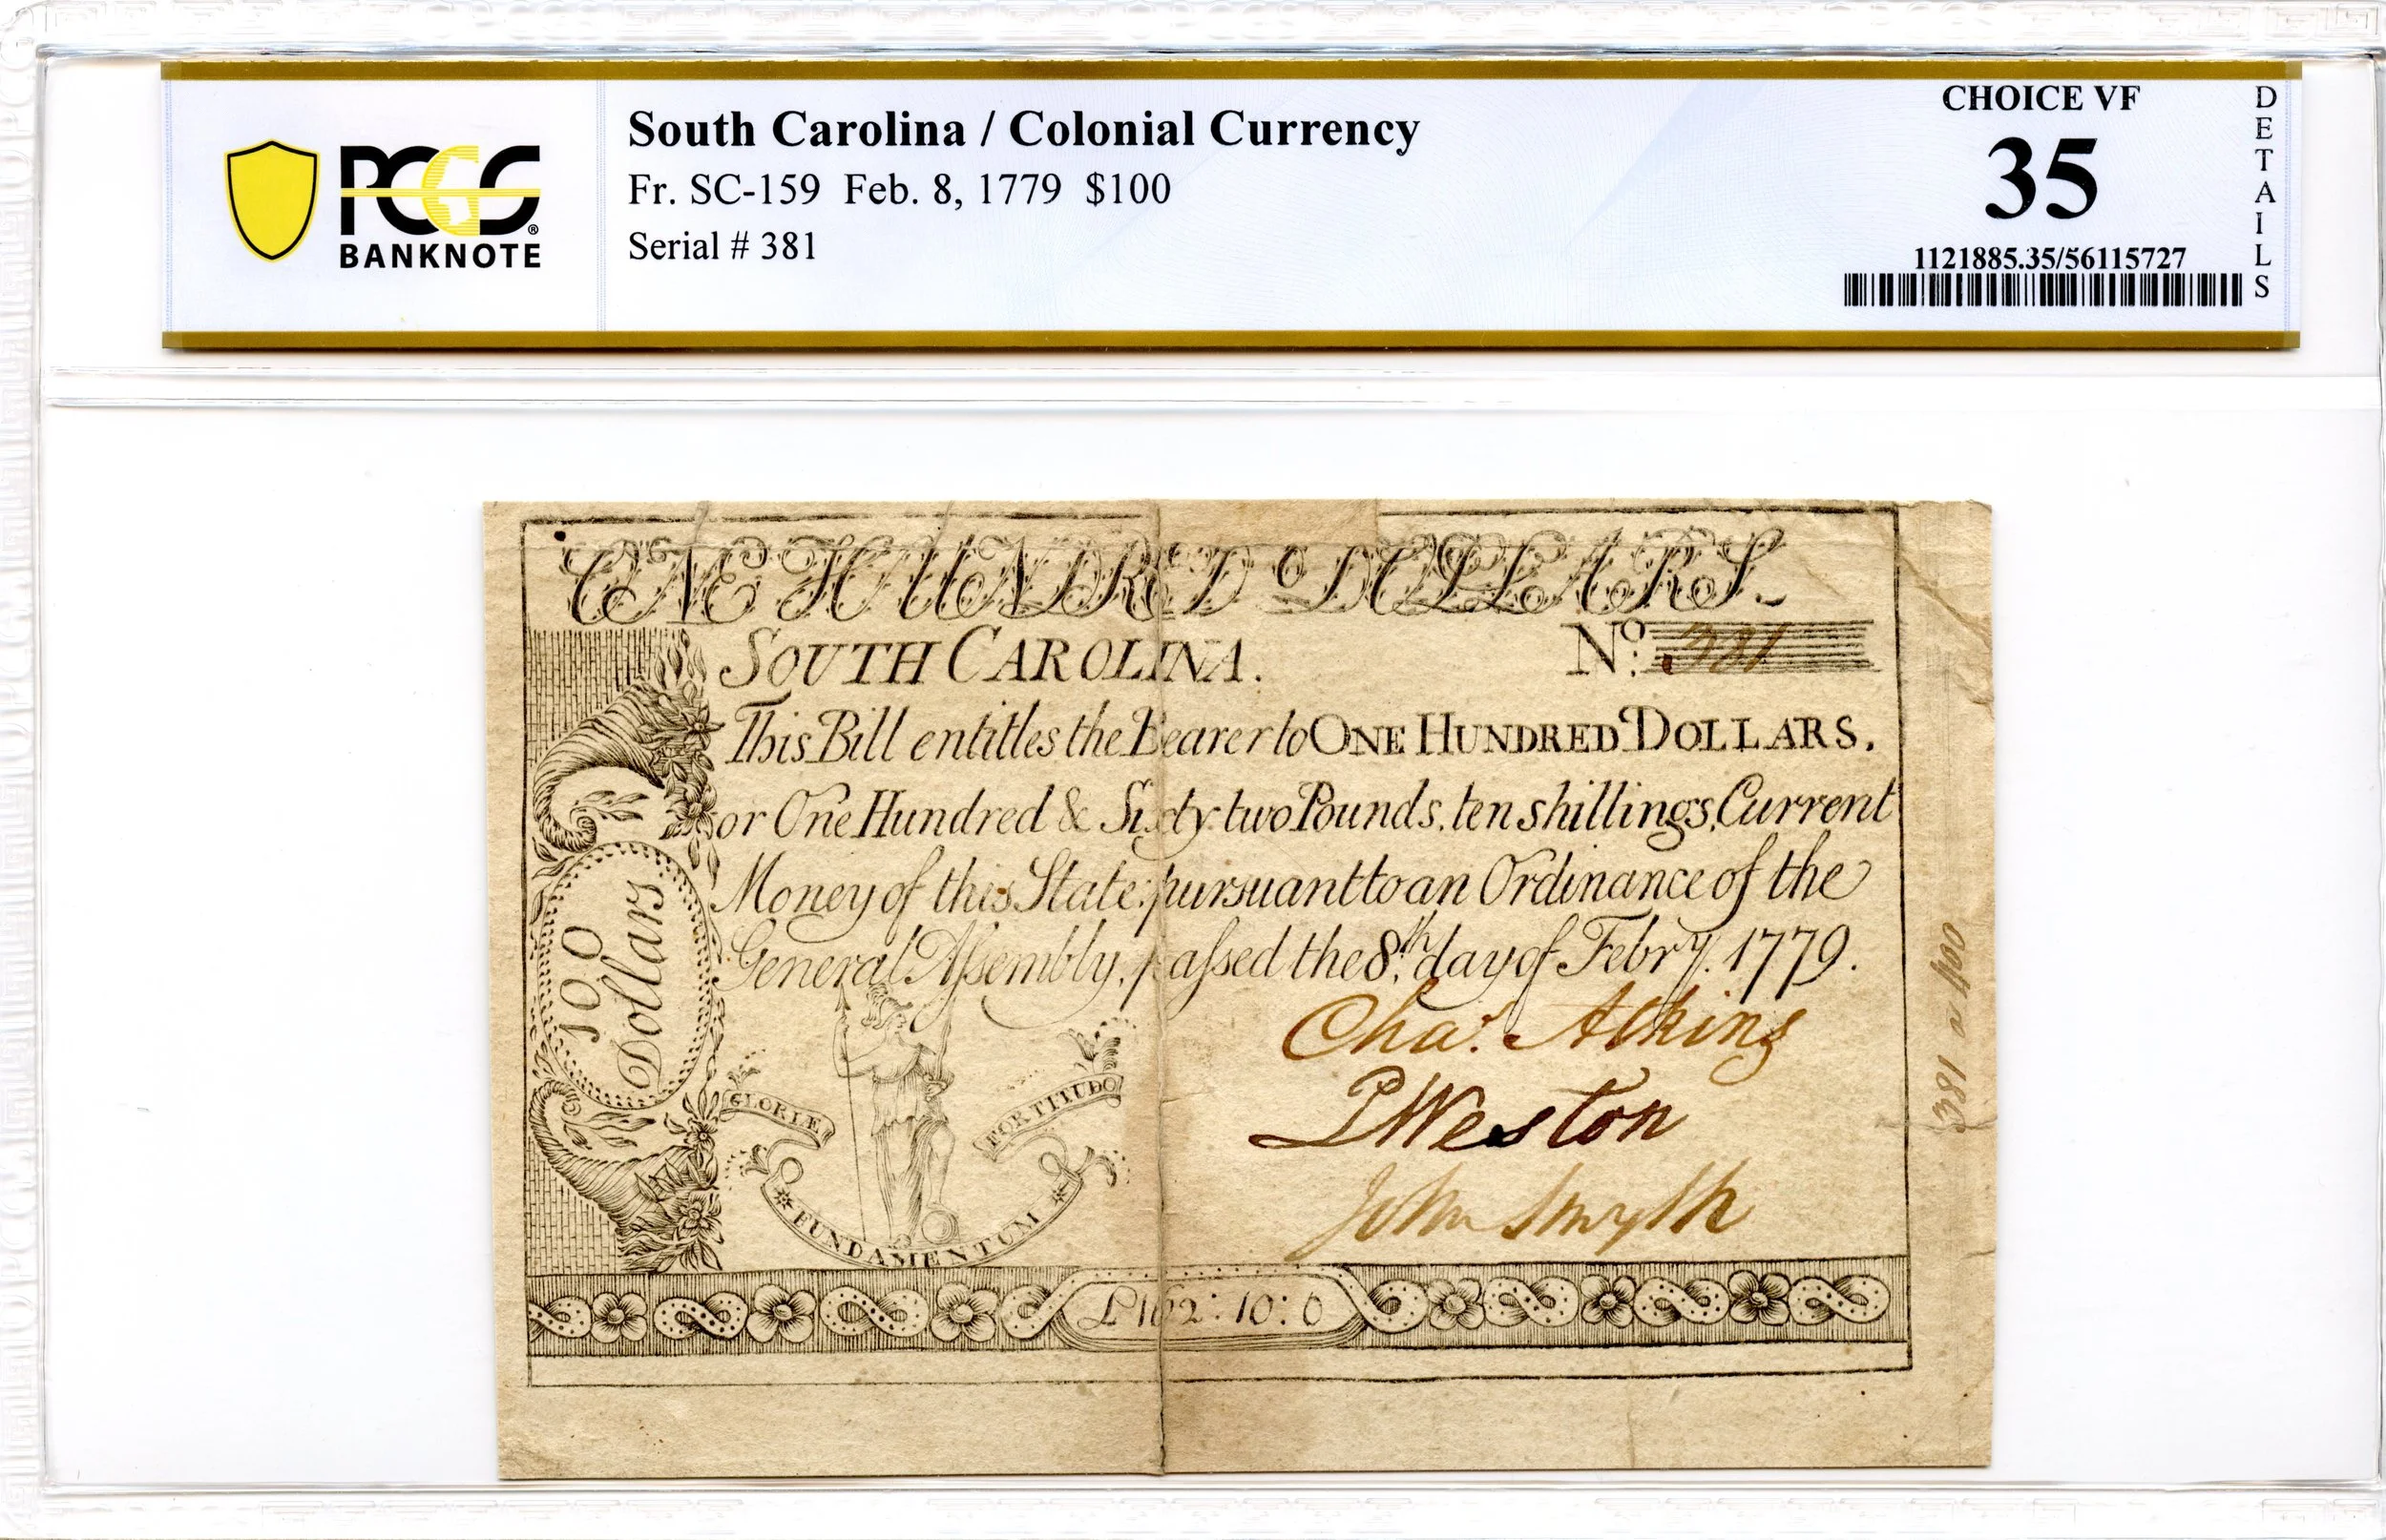 PCGS®
BANKNOTE
South Carolina / Colonial Currency
Fr. SC-159 Feb. 8, 1779 $100
Serial # 381
CHOICE VF
35
1121885.35/56115727
DETAILS
ONE HUNDRED DOLLARS.
SOUTH CAROLINA.
No: 381
This Bill entitles the Bearer to ONE HUNDRED DOLLARS.
or One Hundred & Sixty two Pounds, ten shillings, Current
Money of this State: pursuant to an Ordinance of the
General Assembly, passed the 8th. day of Febry. 1779.
100
Dollars
GLORIÆ
FORTITUDO
FUNDAMENTUM
Chas. Atkins
P Weston
John Smyth
£162:10:0
381 a 400